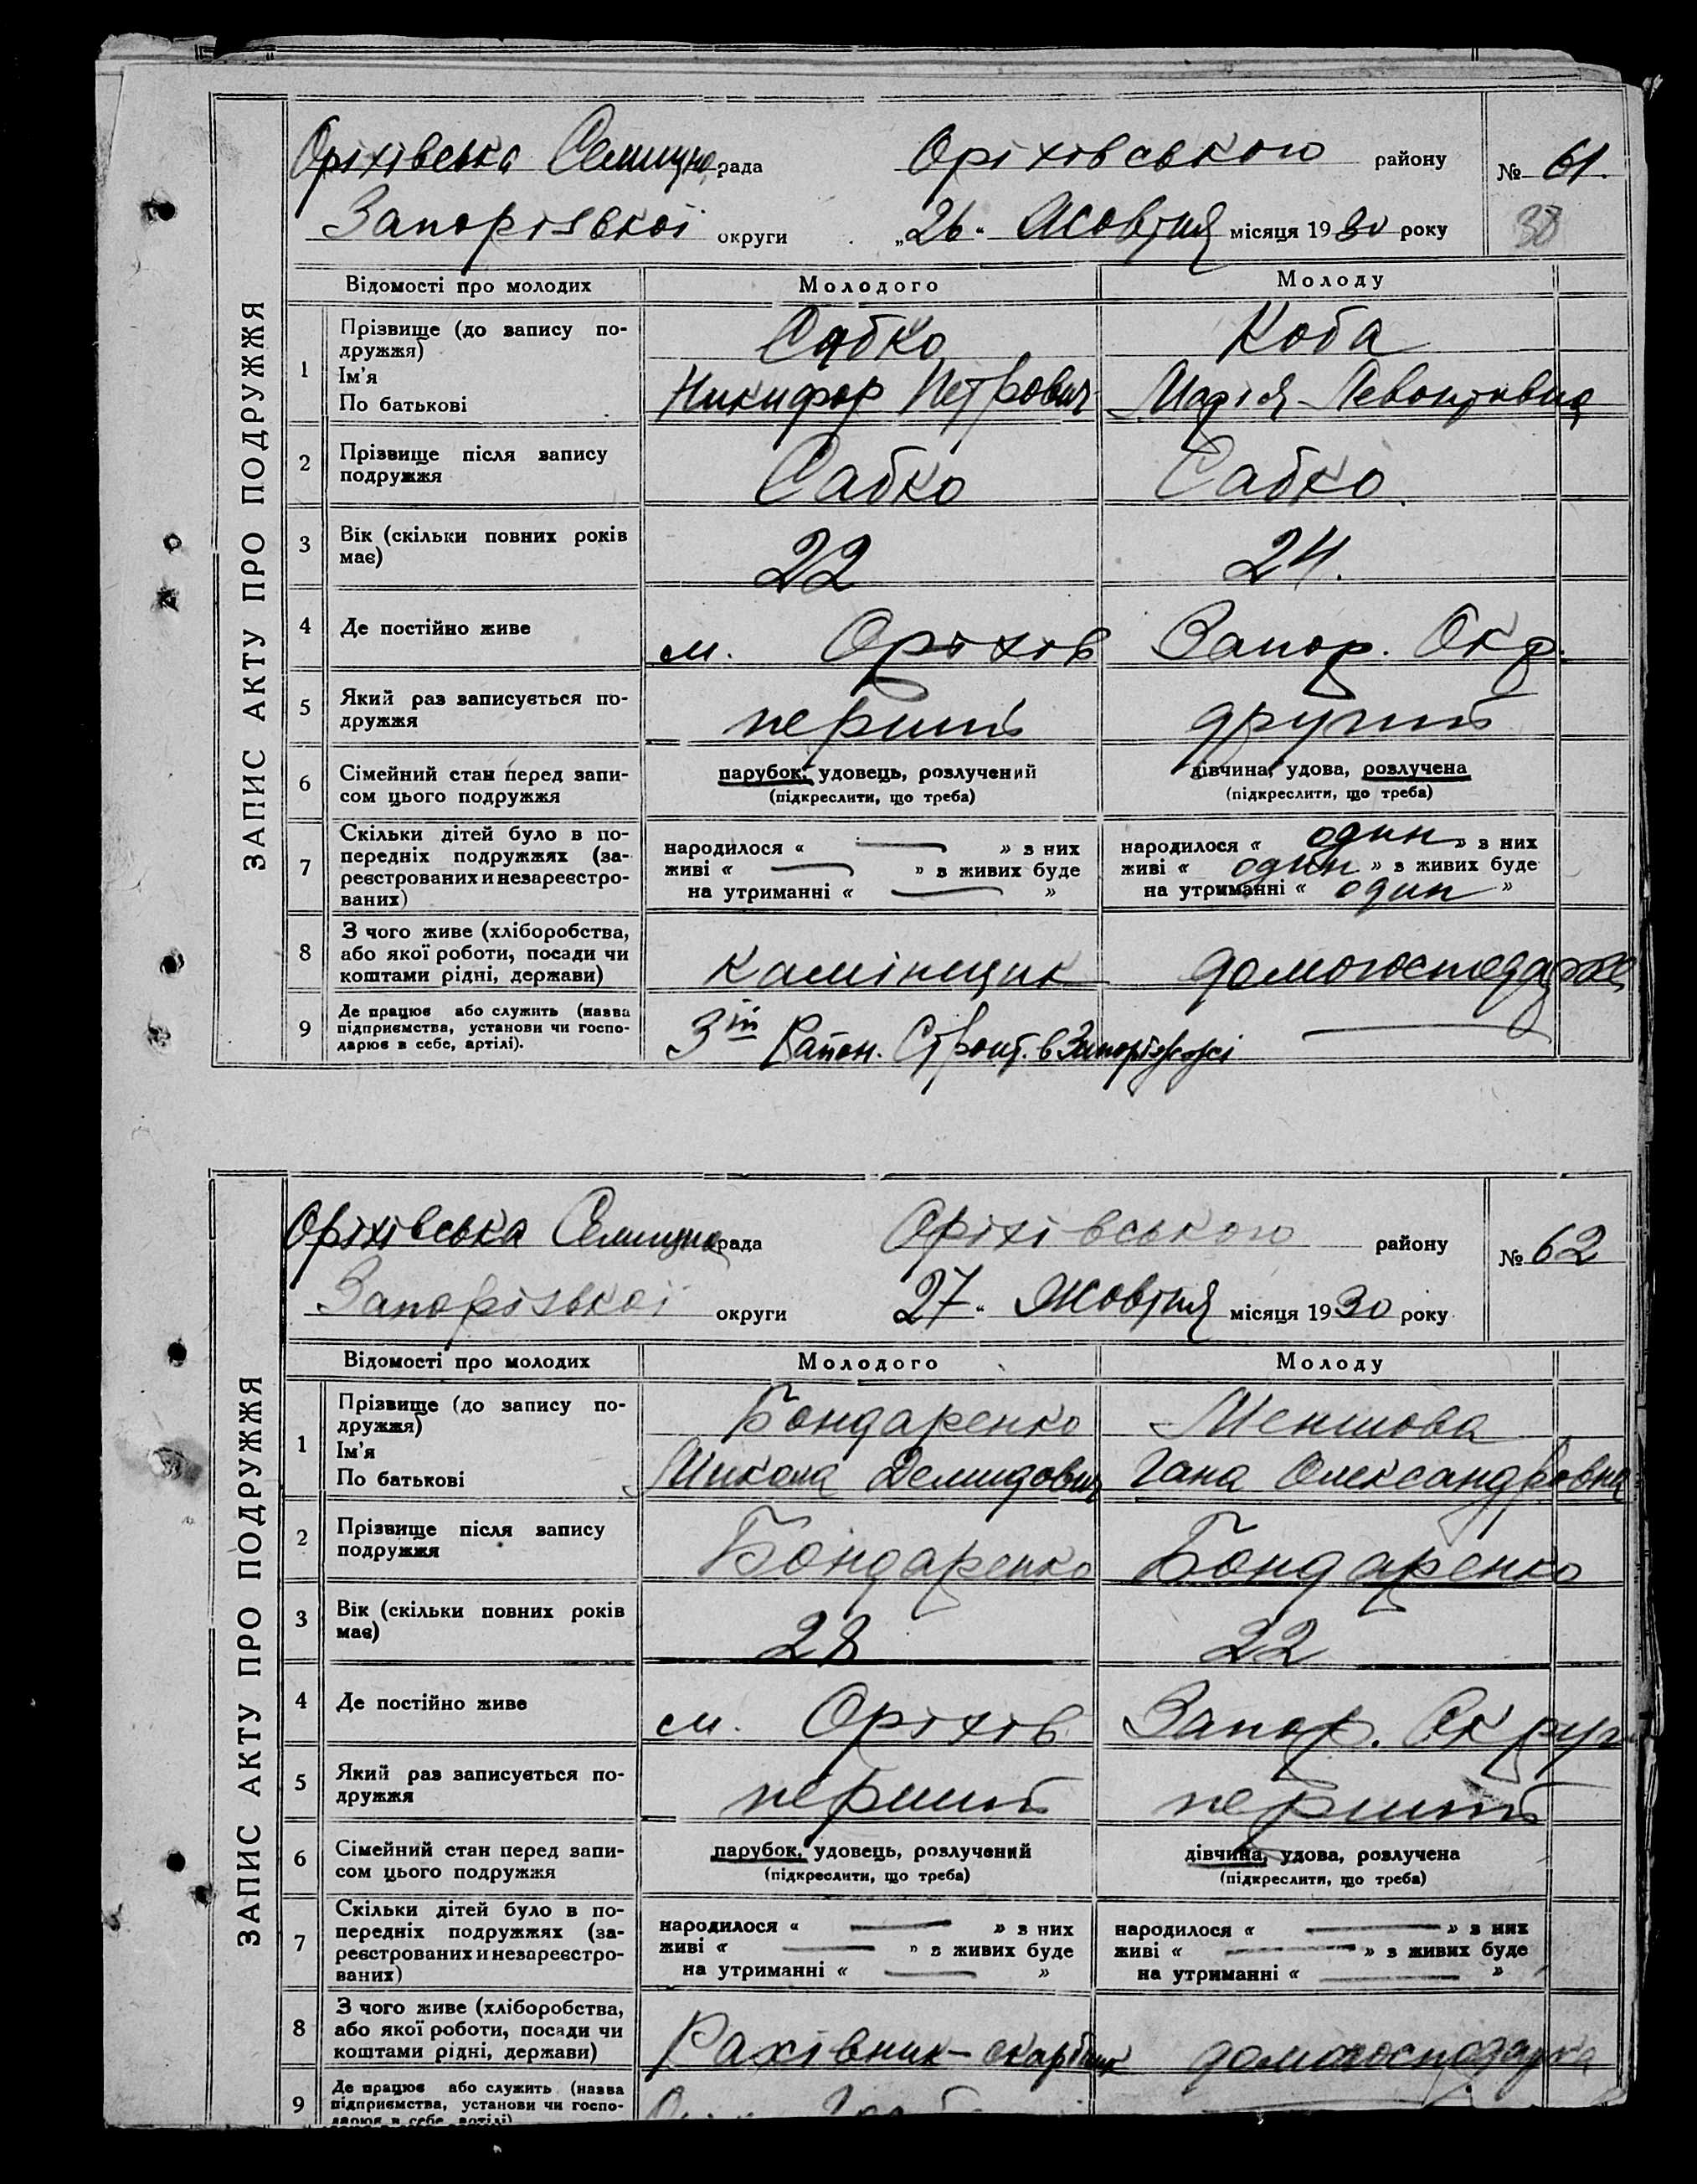 ЗАПИС АКТУ ПРО ПОДРУЖЖЯ
Оріхівська Селищна рада Оріхівського району № 61.
Запорізької округи „26" Жовтня місяця 1930 року 30
Відомості про молодих Молодого Молоду
1 Прізвище (до запису по-
дружжя) Сабко Коба
Ім'я
По батькові Никифор Петрович Марія Левонтивна
2 Прізвище після запису
подружжя Сабко Сабко
3 Вік (скільки повних років
має) 22 24.
4 Де постійно живе м. Оріхів Запор. Окр.
5 Який раз записується по-
дружжя перший другий
6 Сімейний стан перед запи-
сом цього подружжя
парубок, удовець, розлучений дівчина, удова, розлучена
(підкреслити, що треба) (підкреслити, що треба)
7 Скільки дітей було в по-
передніх подружжях (за-
реєстрованих и незареєстро-
ваних)
народилося « — » з них народилося « один » з них
живі « — » з живих буде живі « один » з живих буде
на утриманні « — » на утриманні « один »
8 З чого живе (хліборобства,
або якої роботи, посади чи
коштами рідні, держави) камінщик
9 Де працює або служить (назва
підприємства, установи чи госпо-
дарює в себе, артілі). 3ій Район. Строит. в Запоріжжі —
ЗАПИС АКТУ ПРО ПОДРУЖЖЯ
Оріхівська Селищна рада Оріхівського району № 62
Запорізької округи 27" Жовтня місяця 1930 року
Відомості про молодих Молодого Молоду
1 Прізвище (до запису по-
дружжя) Бондаренко Меншова
Ім'я
По батькові Микола Демидович Гана Олександровна
2 Прізвище після запису
подружжя Бондаренко Бондаренко
3 Вік (скільки повних років
має) 28 22
4 Де постійно живе м. Оріхів Запор. Округ
5 Який раз записується по-
дружжя перший перший
6 Сімейний стан перед запи-
сом цього подружжя
парубок, удовець, розлучений дівчина, удова, розлучена
(підкреслити, що треба) (підкреслити, що треба)
7 Скільки дітей було в по-
передніх подружжях (за-
реєстрованих и незареєстро-
ваних)
народилося « — » з них народилося « — » з них
живі « — » з живих буде живі « — » з живих буде
на утриманні « — » на утриманні « — »
8 З чого живе (хліборобства,
або якої роботи, посади чи
коштами рідні, держави) Рахівник-скарбник домогосподарка
9 Де працює або служить (назва
підприємства, установи чи госпо-
дарює в себе, артілі)